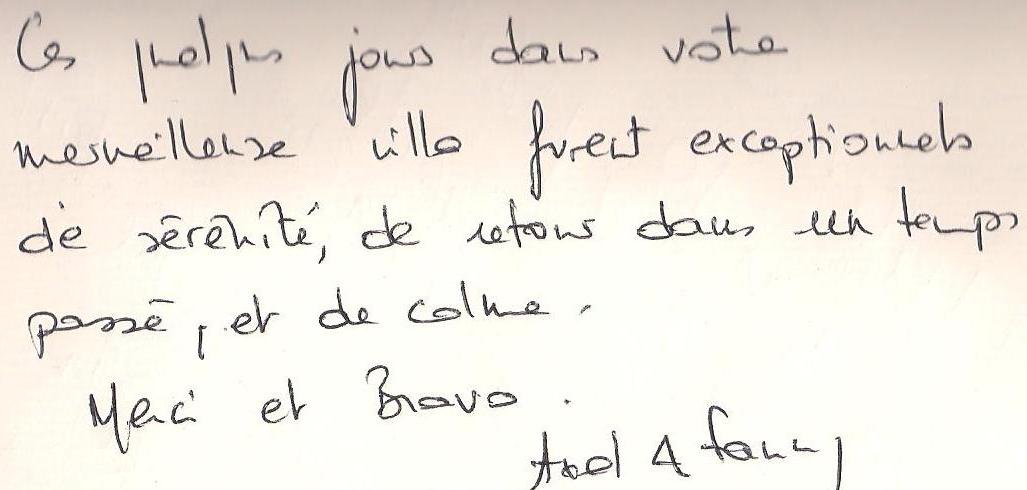 Ces quelques jours dans votre
merveilleuse ville furent exceptionnels
de sérénité, de retour dans un temps
passé, et de calme.
Merci et Bravo.
Axel & Fanny